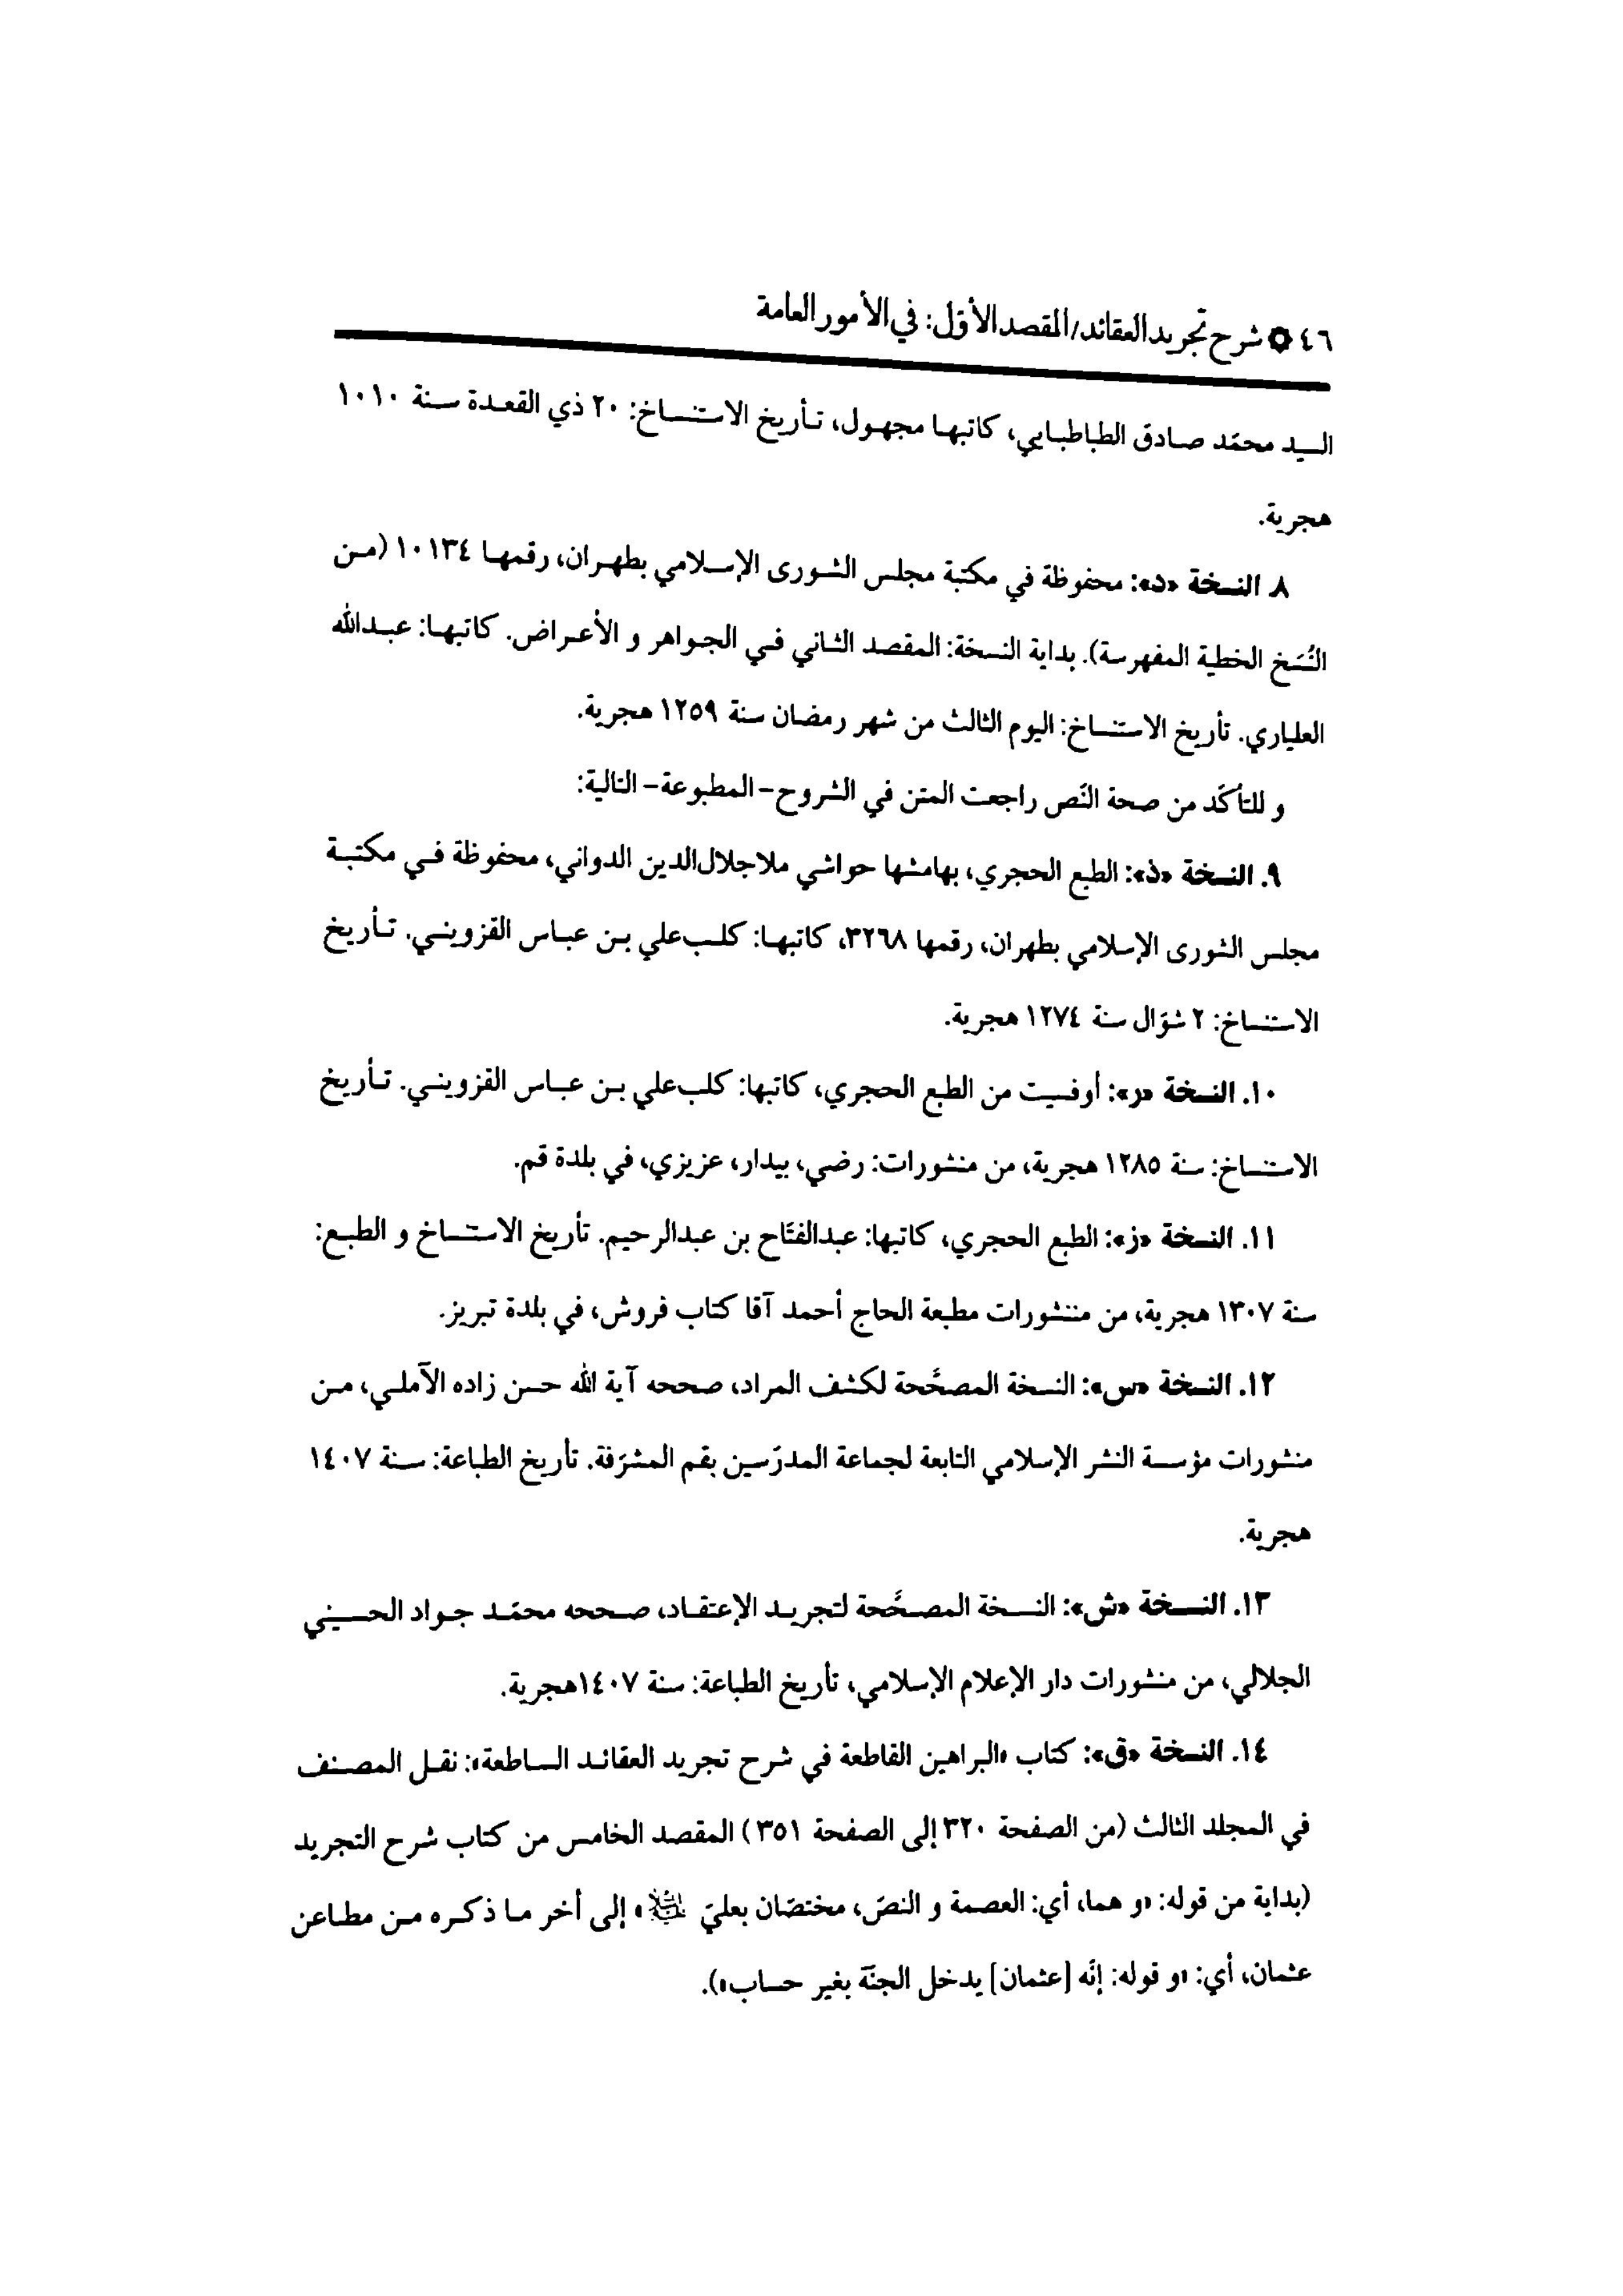 ٤٦ ۞ شرح تجريد العقائد/المقصد الأوّل: في الأمور العامة
السيد محمّد صادق الطباطبايي، كاتبها مجهول، تأريخ الاستنساخ: ٢٠ ذي القعدة سنة ١٠١٠
هجرية.
٨. النسخة «د»: محفوظة في مكتبة مجلس الشورى الإسلامي بطهران، رقمها ١٠١٣٤ (من
النُسَخ الخطية المفهرسة). بداية النسخة: المقصد الثاني في الجواهر و الأعراض. كاتبها: عبدالله
العلياري. تأريخ الاستنساخ: اليوم الثالث من شهر رمضان سنة ١٢٥٩ هجرية.
و للتأكّد من صحة النّص راجعت المتن في الشروح -المطبوعة- التالية:
٩. النسخة «ذ»: الطبع الحجري، بهامشها حواشي ملاجلال‌الدين الدواني، محفوظة في مكتبة
مجلس الشورى الإسلامي بطهران، رقمها ٣٢٦٨، كاتبها: كلب‌علي بن عباس القزويني. تأريخ
الاستنساخ: ٢ شوّال سنة ١٢٧٤ هجرية.
١٠. النسخة «ر»: أوفسيت من الطبع الحجري، كاتبها: كلب‌علي بن عباس القزويني. تأريخ
الاستنساخ: سنة ١٢٨٥ هجرية، من منشورات: رضي، بيدار، عزيزي، في بلدة قم.
١١. النسخة «ز»: الطبع الحجري، كاتبها: عبدالفتّاح بن عبدالرحيم. تأريخ الاستساخ و الطبع:
سنة ١٣٠٧ هجرية، من منشورات مطبعة الحاج أحمد آقا كتاب فروش، في بلدة تبريز.
١٢. النسخة «س»: النسخة المصحَّحة لكشف المراد، صححه آية الله حسن زاده الآملي، من
منشورات مؤسسة النشر الإسلامي التابعة لجماعة المدرّسين بقم المشرّفة. تأريخ الطباعة: سنة ١٤٠٧
هجرية.
١٣. النسخة «ش»: النسخة المصحَّحة لتجريد الإعتقاد، صححه محمّد جواد الحسيني
الجلالي، من منشورات دار الإعلام الإسلامي، تأريخ الطباعة: سنة ١٤٠٧هجرية.
١٤. النسخة «ق»: كتاب «البراهين القاطعة في شرح تجريد العقائد الساطعة»: نقل المصنف
في المجلد الثالث (من الصفحة ٣٢٠ إلى الصفحة ٣٥١) المقصد الخامس من كتاب شرح التجريد
(بداية من قوله: «و هما، أي: العصمة و النصّ، مختصّان بعليّ عليه السلام» إلى أخر ما ذكره من مطاعن
عثمان، أي: «و قوله: إنّه [عثمان] يدخل الجنّة بغير حساب»).